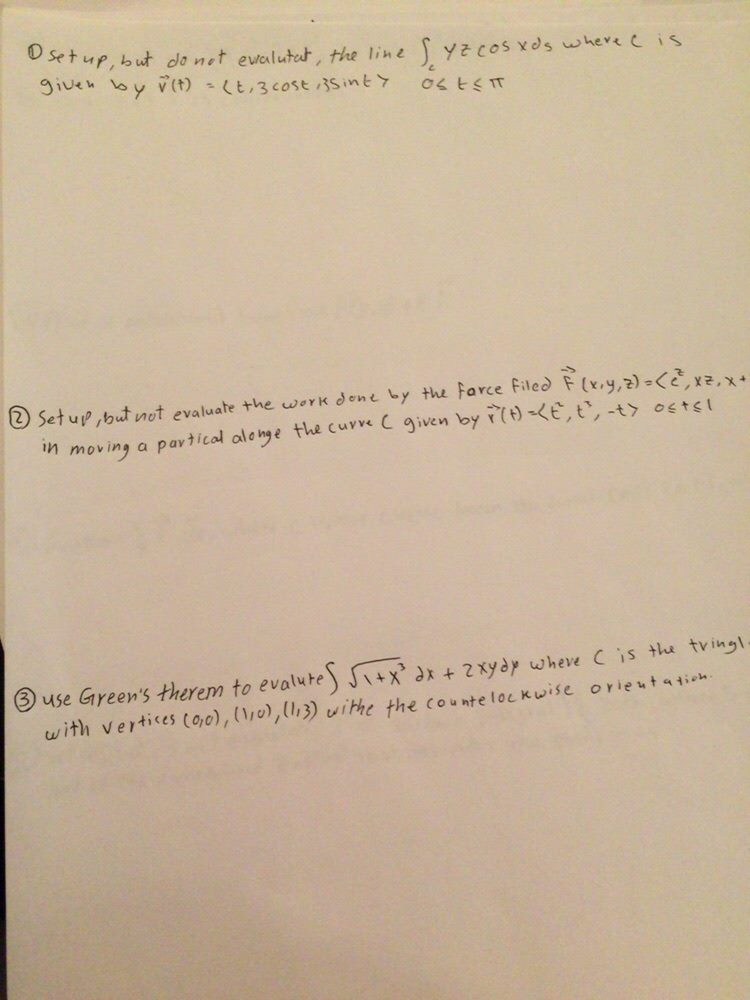 ① set up, but do not evalutat, the line ∫c yz cos x ds where C is
given by r⃗(t) = <t, 3cost, 3sint> 0≤ t ≤ π
② Set up, but not evaluate the work done by the force filed F⃗ (x,y,z) = <e^z, xz, x+
in moving a partical alonge the curve C given by r⃗(t) = <t², t³, -t> 0≤t≤1
③ use Green's therem to evalute ∫ √1+x³ dx + 2xydy where C is the tringl
with vertices (0,0), (1,0), (1,3) withe the countelockwise orientation.